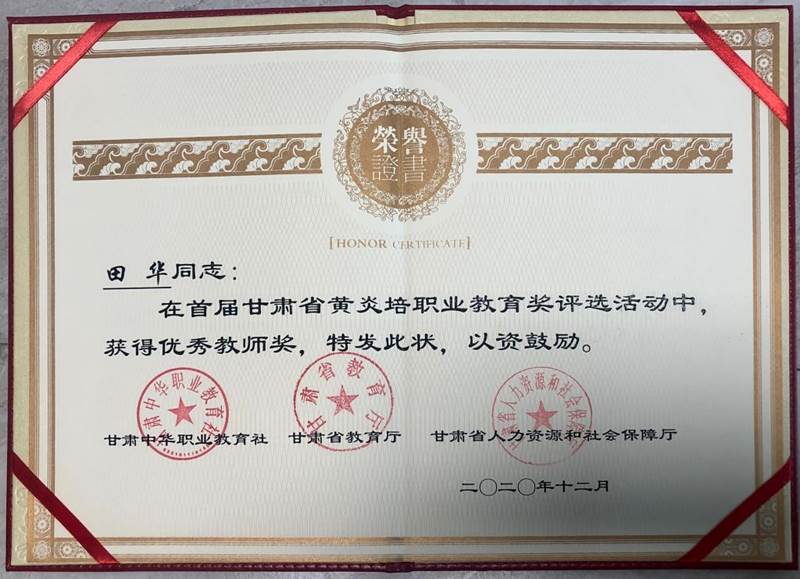 榮譽
證書
[HONOR CERTIFICATE]
田华同志：
在首届甘肃省黄炎培职业教育奖评选活动中，
获得优秀教师奖，特发此状，以资鼓励。
甘肃中华职业教育社
甘肃省教育厅
甘肃省人力资源和社会保障厅
甘肃中华职业教育社 甘肃省教育厅 甘肃省人力资源和社会保障厅
二〇二〇年十二月